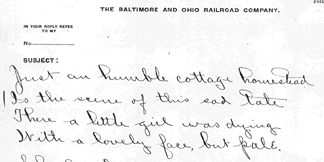 THE BALTIMORE AND OHIO RAILROAD COMPANY.
IN YOUR REPLY REFER
TO MY
No.
SUBJECT:
Just an humble cottage homestead
Is the scene of this sad tale.
There a little girl was dying
With a lovely face, but pale.